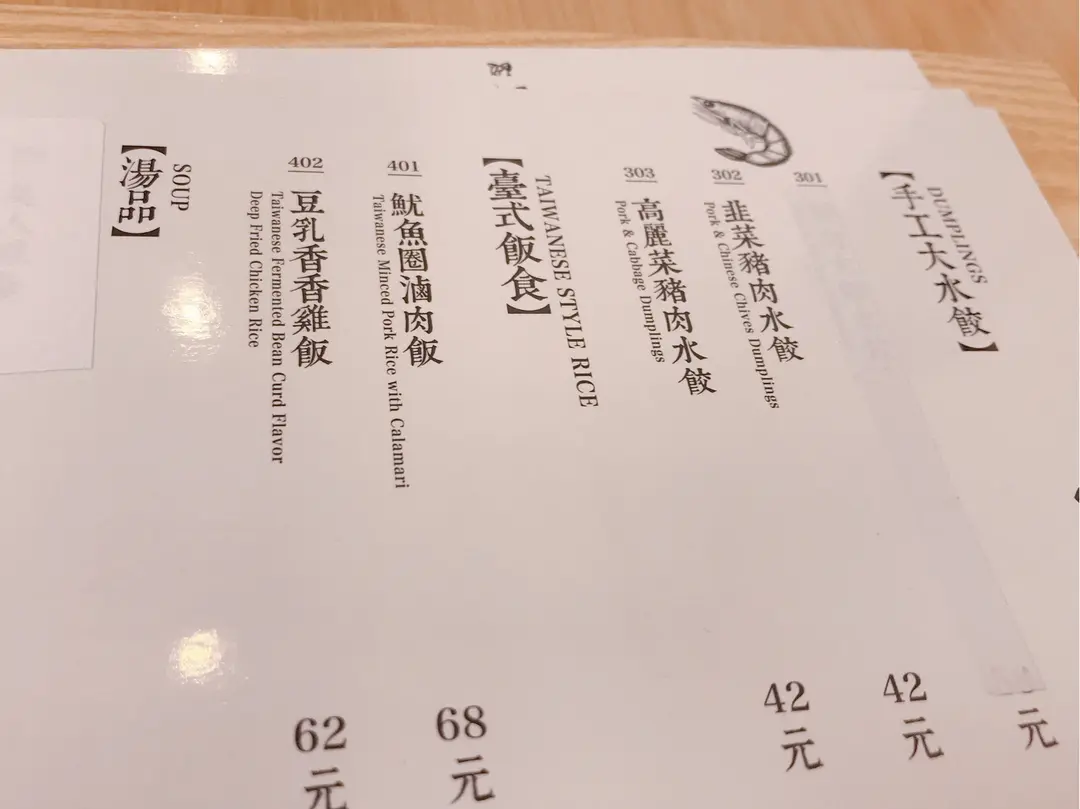 【手工大水餃】
DUMPLINGS
301
元
302
韭菜豬肉水餃
Pork & Chinese Chives Dumplings
42
元
303
高麗菜豬肉水餃
Pork & Cabbage Dumplings
42
元
【臺式飯食】
TAIWANESE STYLE RICE
401
魷魚圈滷肉飯
Taiwanese Minced Pork Rice with Calamari
68
元
402
豆乳香香雞飯
Taiwanese Fermented Bean Curd Flavor
Deep Fried Chicken Rice
62
元
【湯品】
SOUP